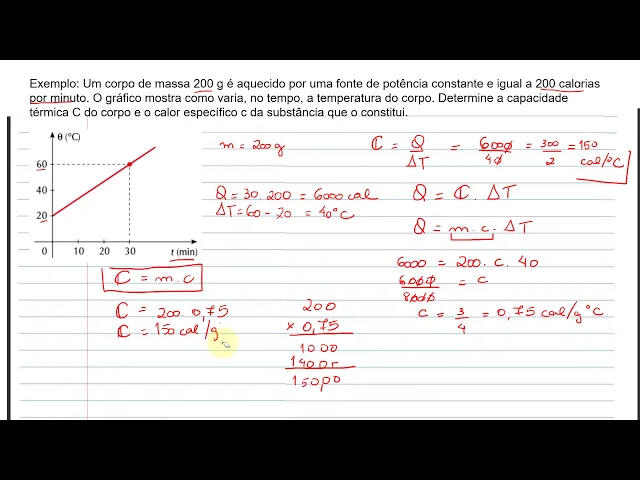 Exemplo: Um corpo de massa 200 g é aquecido por uma fonte de potência constante e igual a 200 calorias
por minuto. O gráfico mostra como varia, no tempo, a temperatura do corpo. Determine a capacidade
térmica C do corpo e o calor específico c da substância que o constitui.
θ (°C)
60
40
20
0 10 20 30 t (min)
m = 200g
Q = 30.200 = 6000 cal
ΔT = 60 - 20 = 40°C
C = Q/ΔT = 6000/40 = 300/2 = 150 cal/°C
Q = C. ΔT
Q = m. c. ΔT
6000 = 200. c. 40
6000/8000 = c
c = 3/4 = 0,75 cal/g°C
C = m.c
C = 200. 0,75
C = 150 cal/g
200
x 0,75
1000
1400
150,00